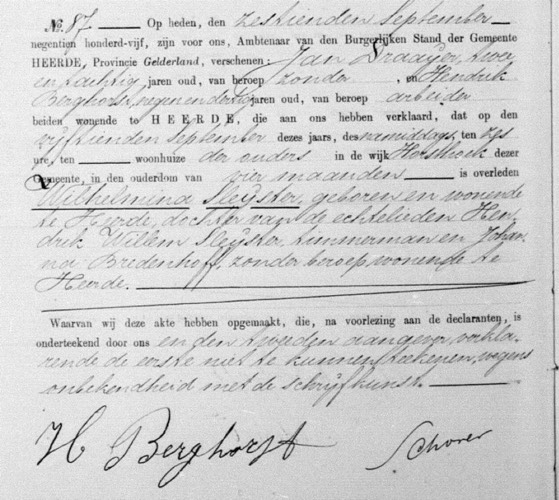 No. 87 Op heden, den zestienden September
negentien honderd-vijf, zijn voor ons, Ambtenaar van den Burgerlijken Stand der Gemeente
HEERDE, Provincie Gelderland, verschenen: Jan Draayer, twee
en tachtig jaren oud, van beroep zonder, en Hendrik
Berghorst, negen en dertig jaren oud, van beroep arbeider
beiden wonende te HEERDE, die aan ons hebben verklaard, dat op den
vijftienden September dezes jaars, des namiddags, ten zes
ure, ten woonhuize der ouders in de wijk Horsthoek dezer
Gemeente, in den ouderdom van vier maanden is overleden
Wilhelmina Sleijster, geboren en wonende
te Heerde, dochter van de echtelieden Hen-
drik Willem Sleijster, timmerman en Johan-
na Bredenhoff, zonder beroep, wonende te
Heerde.
Waarvan wij deze akte hebben opgemaakt, die, na voorlezing aan de declaranten, is
onderteekend door ons en den tweeden aangever, verkla-
rende de eerste niet te kunnen teekenen, wegens
onbekendheid met de schrijfkunst.
H Berghorst Schorer